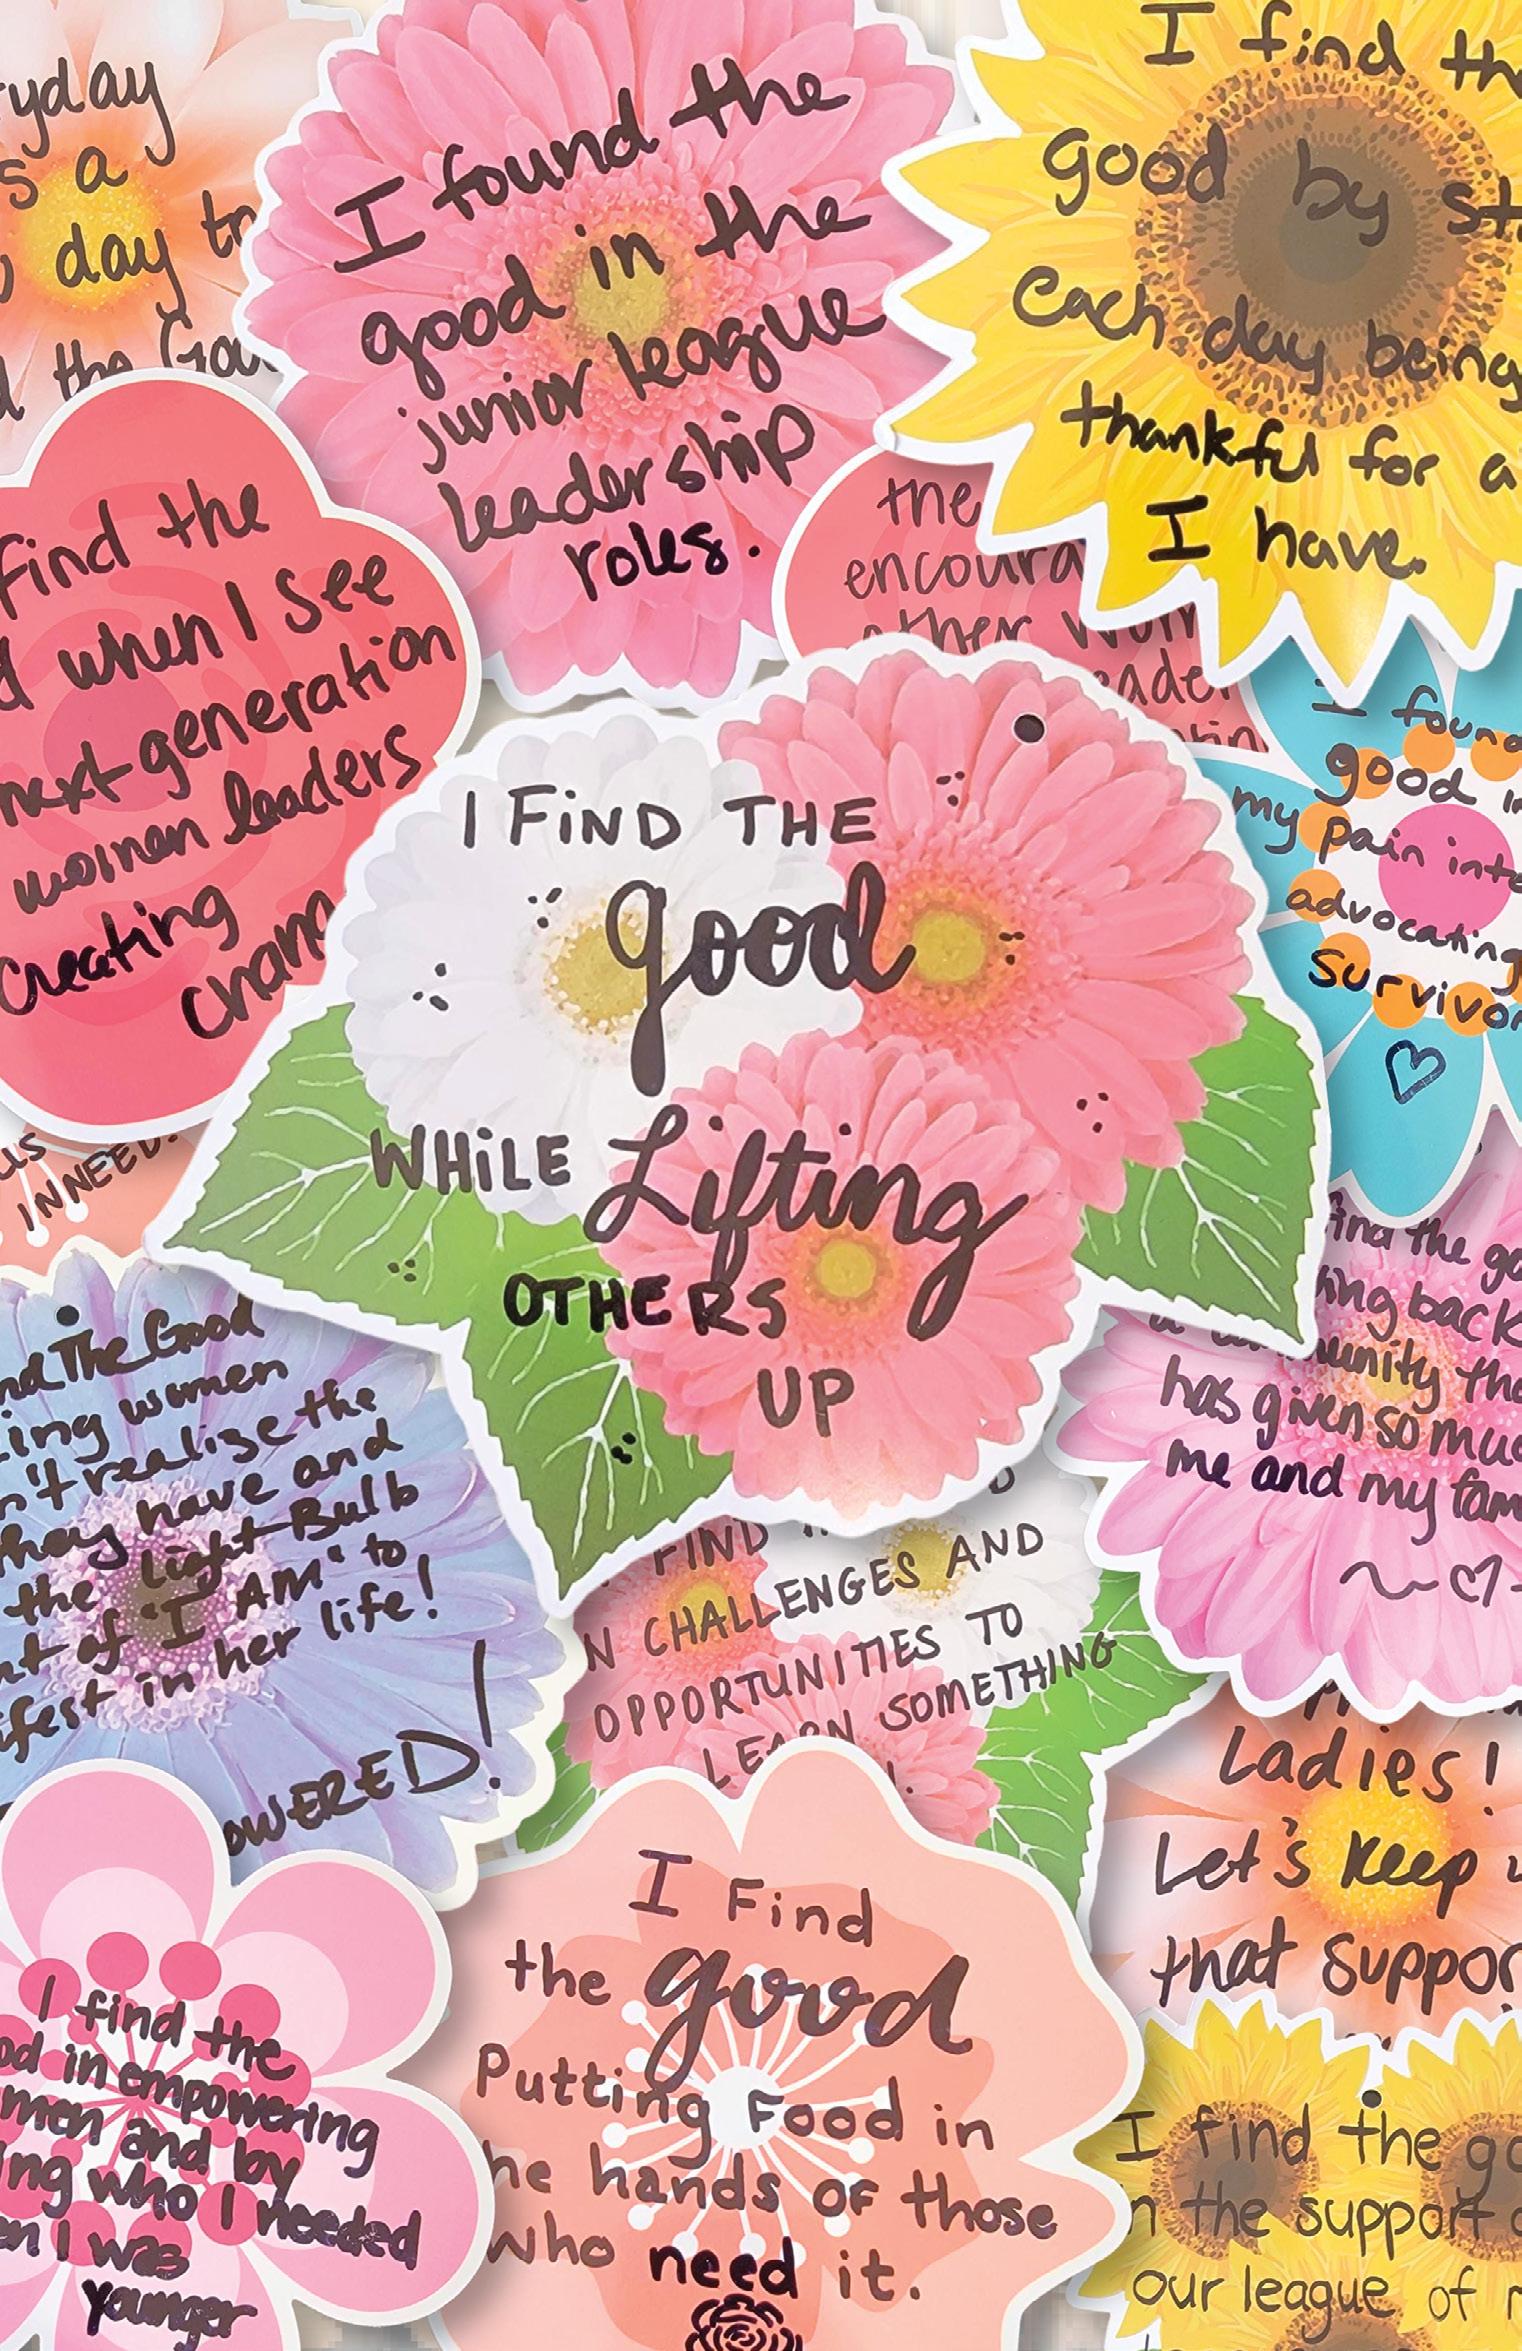 yday
s a
day to
the Goo
I found the
good in the
junior league
leadership
roles.
I find th
good by st
each day being
thankful for a
I have.
find the
d when I see
next generation
women leaders
creating
chan
the
encoura
other wom
eader
tin
I found
good in
my pain into
advocating
survivor
I FiND THE
good
WHiLE Lifting
OTHERS
UP
us
IN NEED.
nd The Good
ing women
n't realize the
they have and
the Light Bulb
nt of "I AM" to
ifest in her life!
OWERED!
find the go
ing back
a community tha
has given so muc
me and my fam
FIND
N CHALLENGES AND
OPPORTUNITIES TO
LEARN SOMETHING
Ladies!
Let's keep u
that suppor
I find the
od in empowering
men and by
ing who I needed
en I was
younger
I Find
the good
Putting Food in
he hands of those
who need it.
I find the go
n the support o
our league of